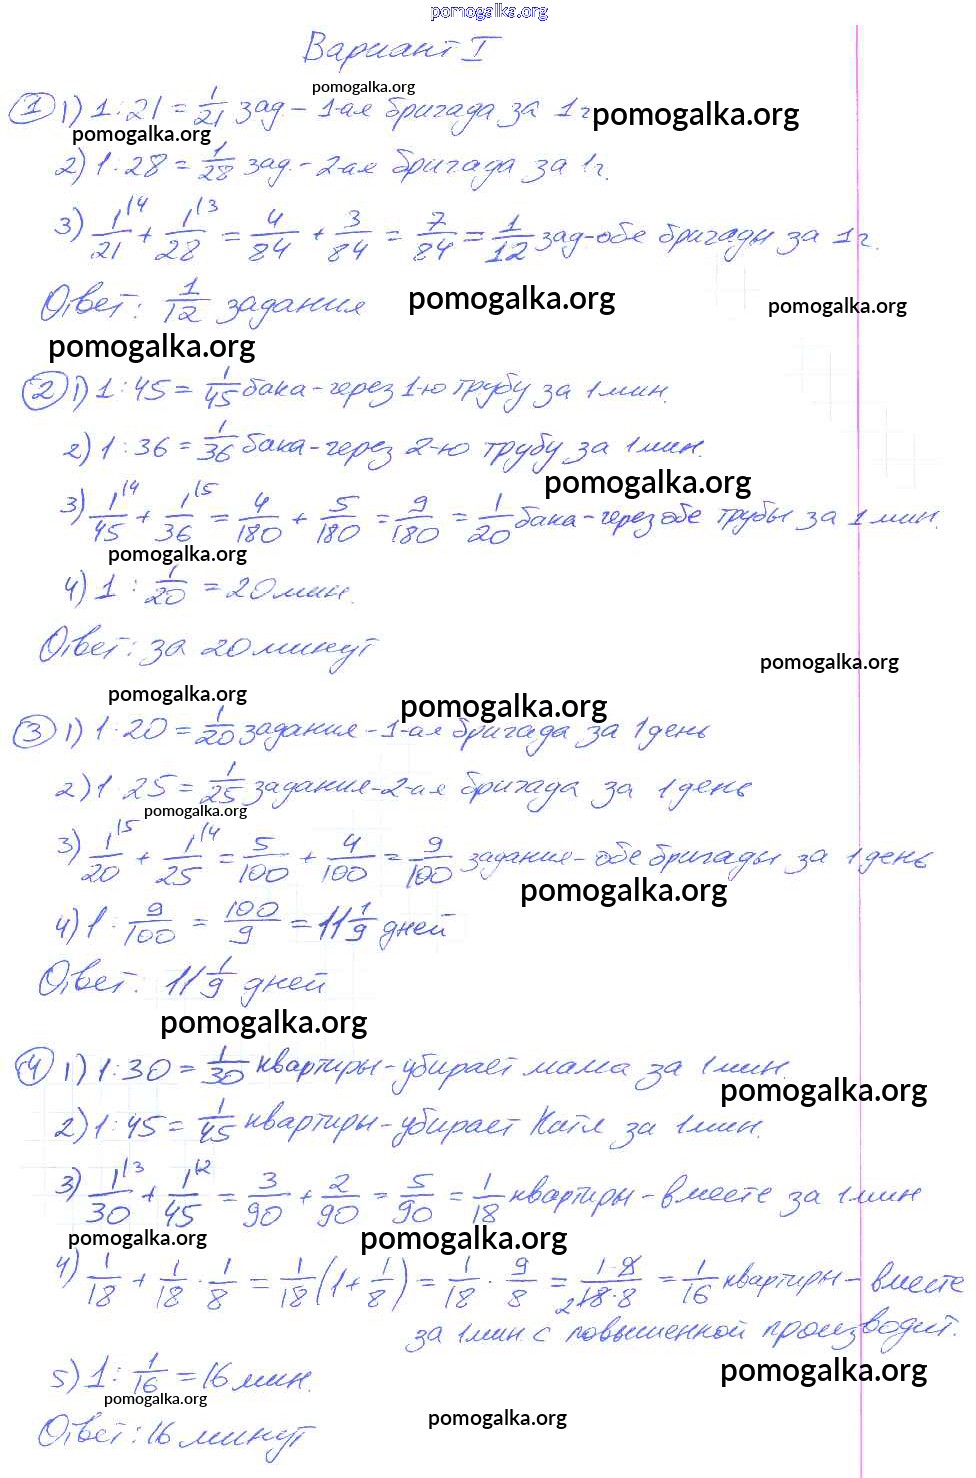 pomogalka.org
Вариант I
pomogalka.org
① 1) 1 : 21 = 1/21 зад. - 1-ая бригада за 1г
pomogalka.org
pomogalka.org
2) 1 : 28 = 1/28 зад. - 2-ая бригада за 1г.
3) 1/21 \4 + 1/28 \3 = 4/84 + 3/84 = 7/84 = 1/12 зад-обе бригады за 1г.
Ответ: 1/12 задания
pomogalka.org
pomogalka.org
pomogalka.org
② 1) 1 : 45 = 1/45 бака - через 1-ю трубу за 1 мин.
2) 1 : 36 = 1/36 бака - через 2-ю трубу за 1 мин.
pomogalka.org
3) 1/45 \4 + 1/36 \5 = 4/180 + 5/180 = 9/180 = 1/20 бака - через обе трубы за 1 мин.
pomogalka.org
4) 1 : 1/20 = 20 мин.
Ответ: за 20 минут
pomogalka.org
pomogalka.org
pomogalka.org
③ 1) 1 : 20 = 1/20 задания - 1-ая бригада за 1 день
2) 1 : 25 = 1/25 задания - 2-ая бригада за 1 день
pomogalka.org
3) 1/20 \5 + 1/25 \4 = 5/100 + 4/100 = 9/100 задания - обе бригады за 1 день
pomogalka.org
4) 1 : 9/100 = 100/9 = 11 1/9 дней
Ответ: 11 1/9 дней
pomogalka.org
④ 1) 1 : 30 = 1/30 квартиры - убирает мама за 1 мин.
pomogalka.org
2) 1 : 45 = 1/45 квартиры - убирает Катя за 1 мин.
3) 1/30 \3 + 1/45 \2 = 3/90 + 2/90 = 5/90 = 1/18 квартиры - вместе за 1 мин
pomogalka.org
pomogalka.org
4) 1/18 + 1/18 · 1/8 = 1/18 (1 + 1/8) = 1/18 · 9/8 = 1·9/2 18·8 = 1/16 квартиры - вместе
за 1 мин. с повышенной производит.
5) 1 : 1/16 = 16 мин.
pomogalka.org
pomogalka.org
Ответ: 16 минут
pomogalka.org